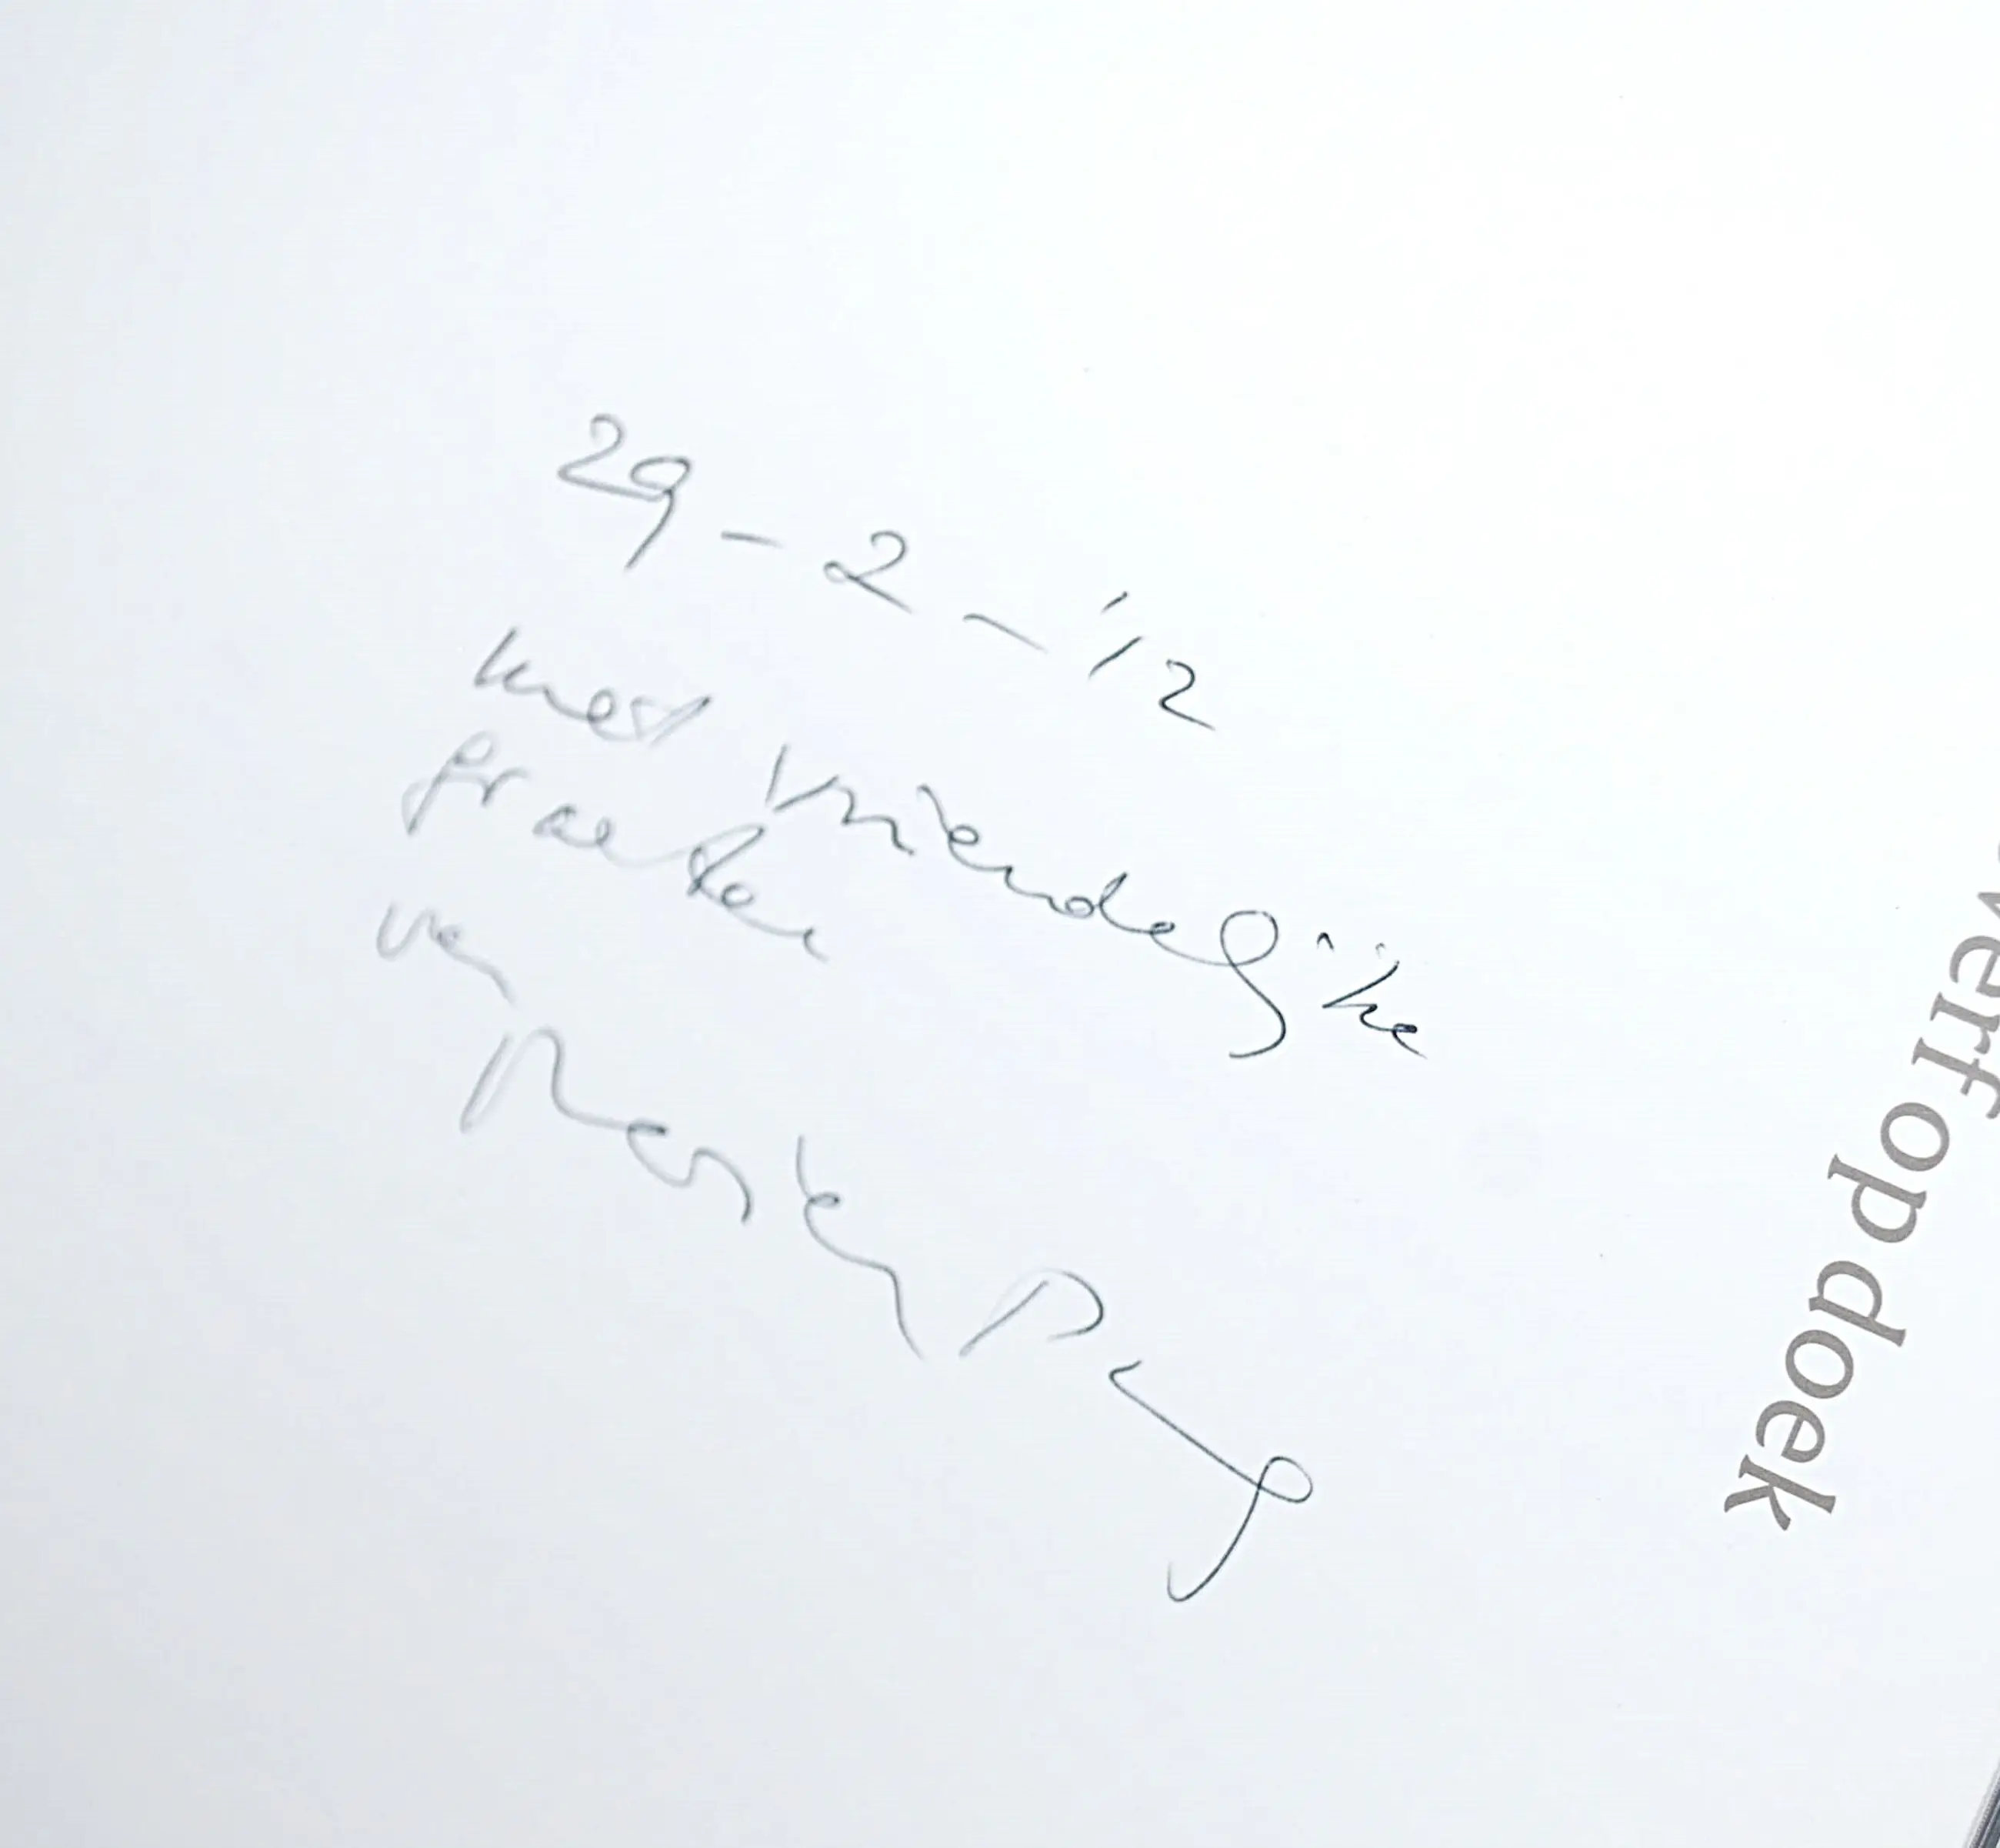 29-2-'12
met vriendelijke
groeten
van
verf op doek